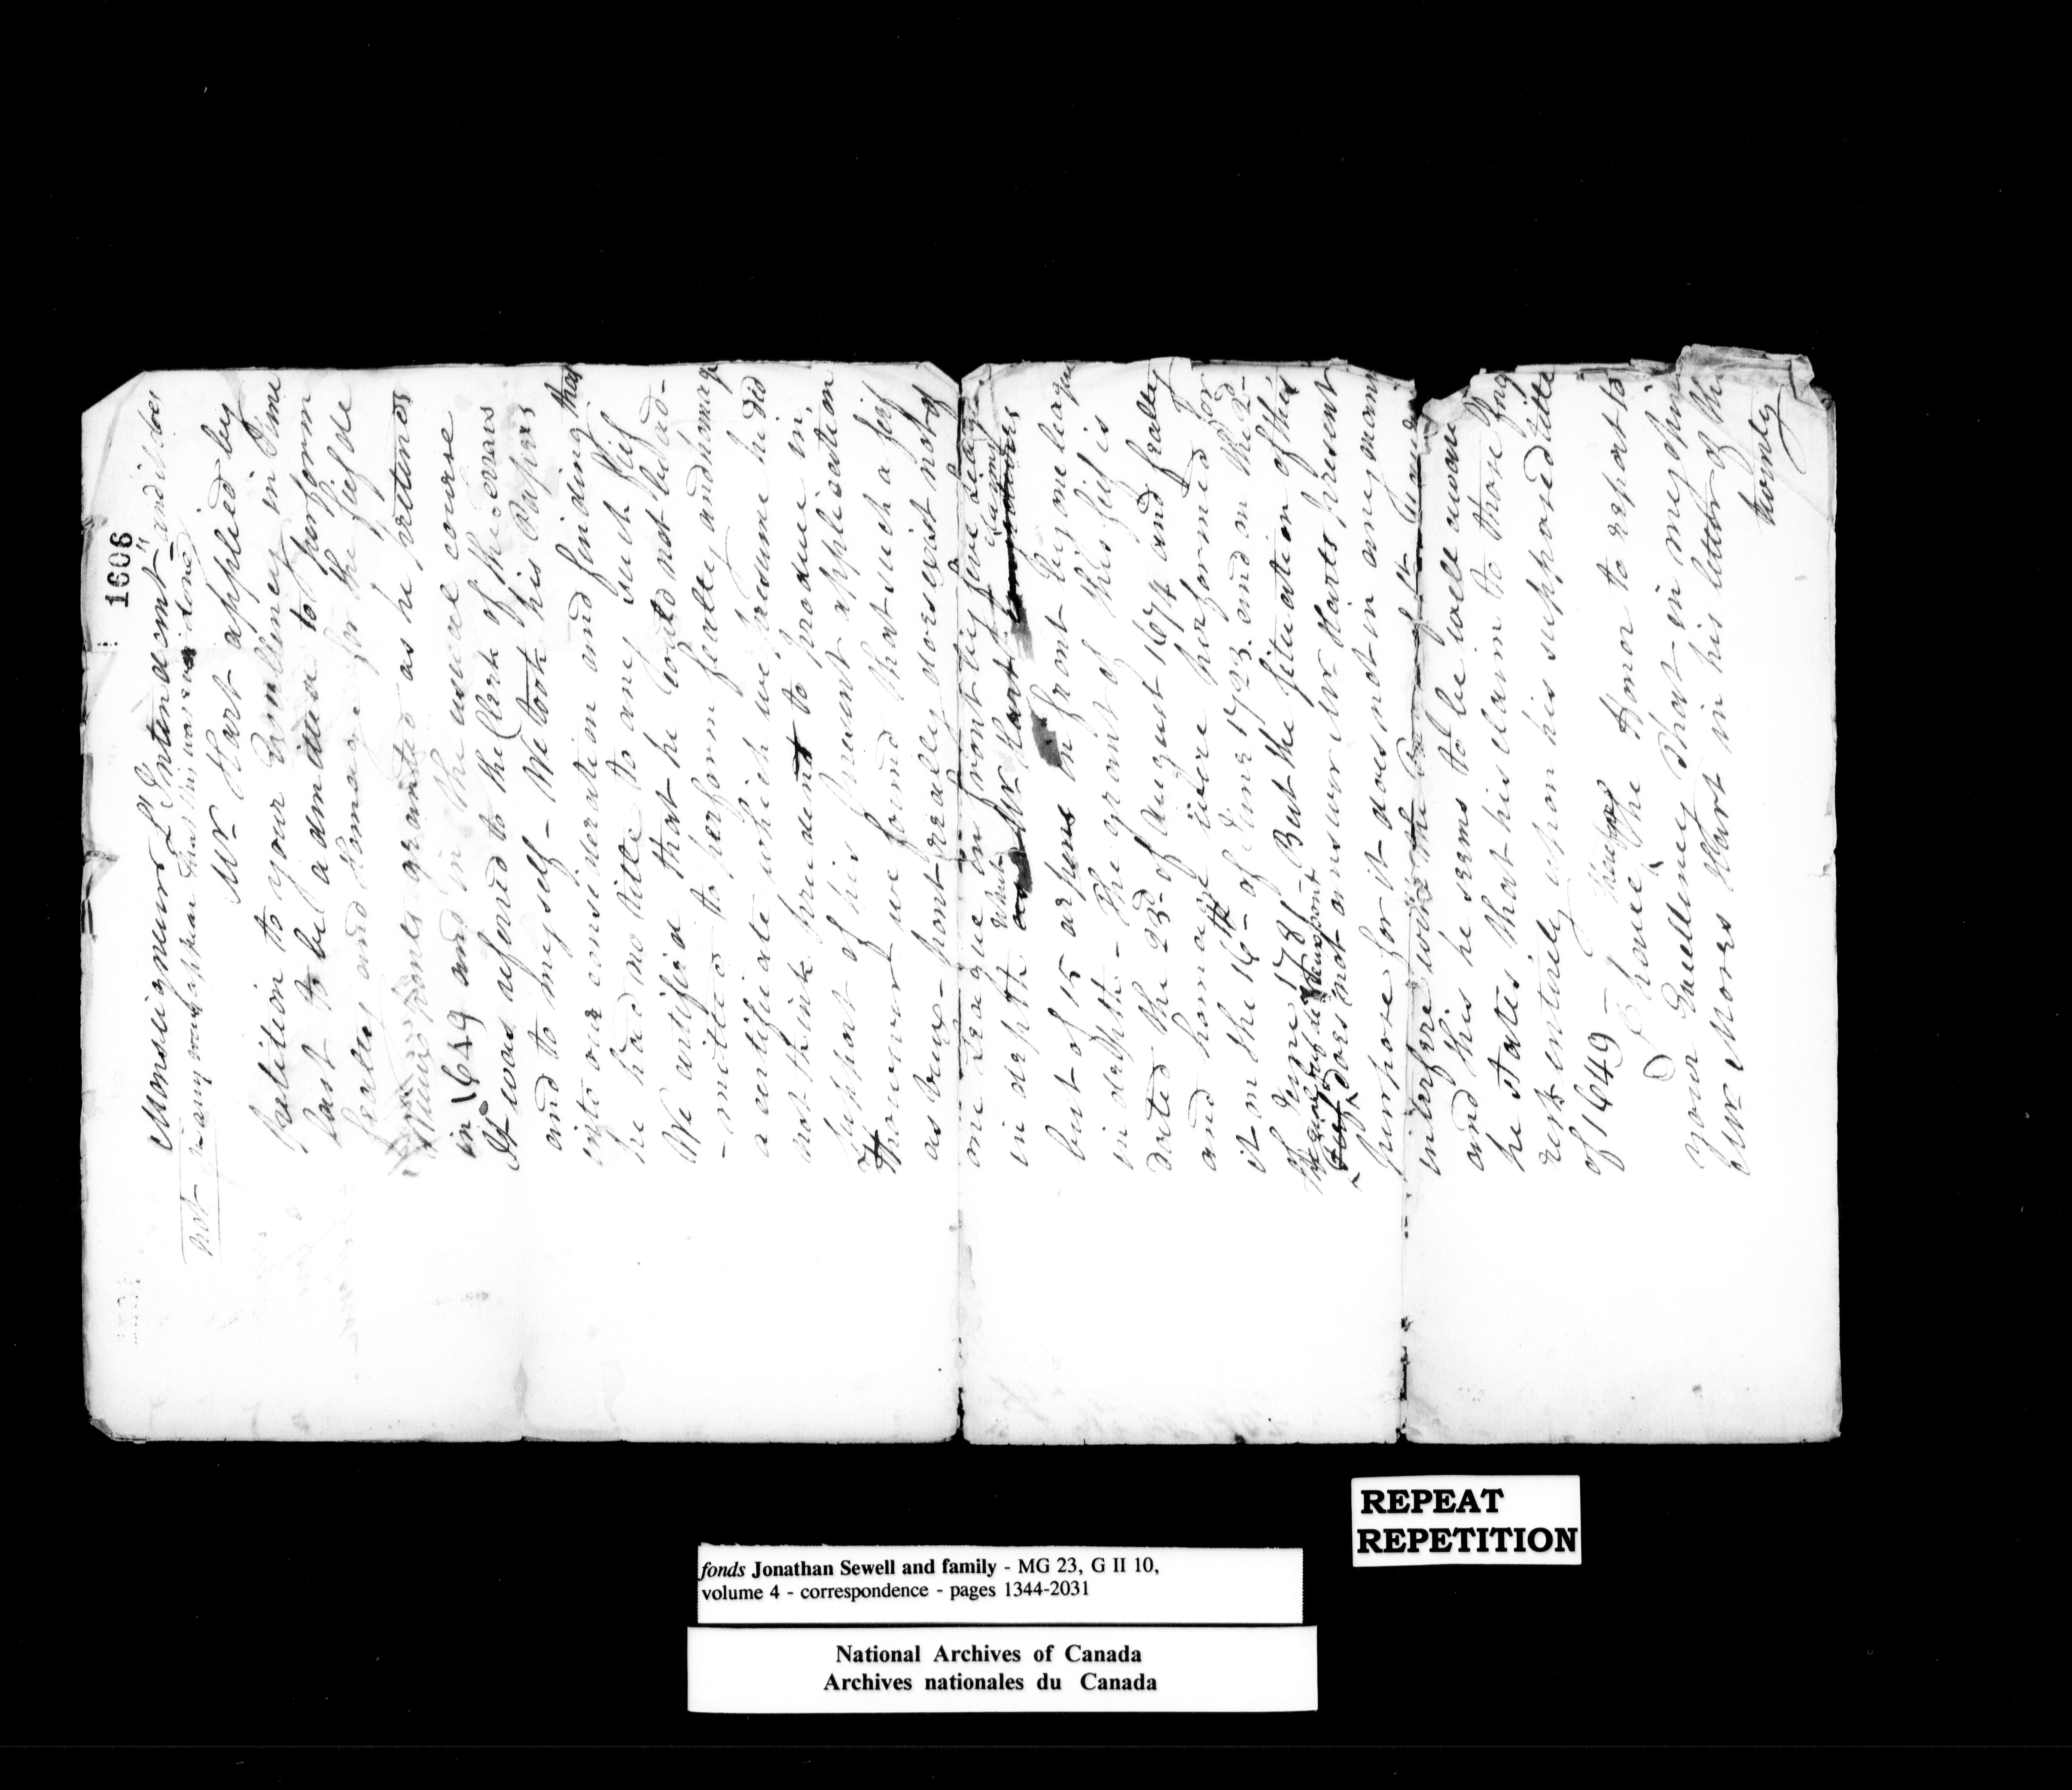 1606
Monseigneur L'Intendant" and it does
not in any way appear that this was ever done
Mr Hart applied by
Petition to your Excellency in June
last to be admitted to perform
fealty and homage for the fief de
vieux pont granted as he pretends
in 1649 and in the usual course
It was refered to the Clerk of the terrars
and to myself - We took his Papers
into our consideration and finding that
he had no title to any such fief
We certified that he could not be ad-
-mitted to perform fealty and homage
a certificate which we presume he did
not think prudent to produce in
support of his present application
However we found that such a fief
as vieux-pont really does exist not of
one League in front by five Leagues
in depth which Mr Hart claims
but of 15 arpens in front by one league
in depth - The grant of this fief is
dated the 23d of August 1674 and fealty
and homage were performed for
it on the 16th of June 1723. and on the 2d
of June 1781 - But the situation of this
the real fief de vieuxpont
does not answer Mr Harts present
purpose for it does not in any manner
interfere with the
and this he seems to be well aware
he states that his claim to those
rests entirely upon his supposed title
of 1649 -
I have therefore the Honor to report to
your Excellency that in my opin
Mr Moses Hart in his letter of the
twenty
REPEAT
REPETITION
fonds Jonathan Sewell and family - MG 23, G II 10,
volume 4 - correspondence - pages 1344-2031
National Archives of Canada
Archives nationales du Canada